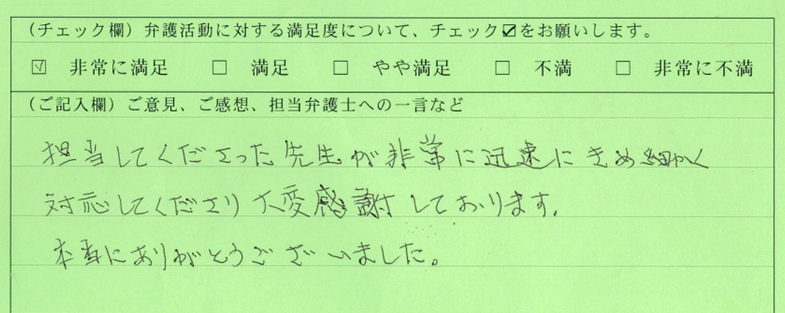 (チェック欄)弁護活動に対する満足度について、チェック☑をお願いします。
☑ 非常に満足 □ 満足 □ やや満足 □ 不満 □ 非常に不満
(ご記入欄)ご意見、ご感想、担当弁護士への一言など
担当してくださった先生が非常に迅速にきめ細かく
対応してくださり大変感謝しております。
本当にありがとうございました。